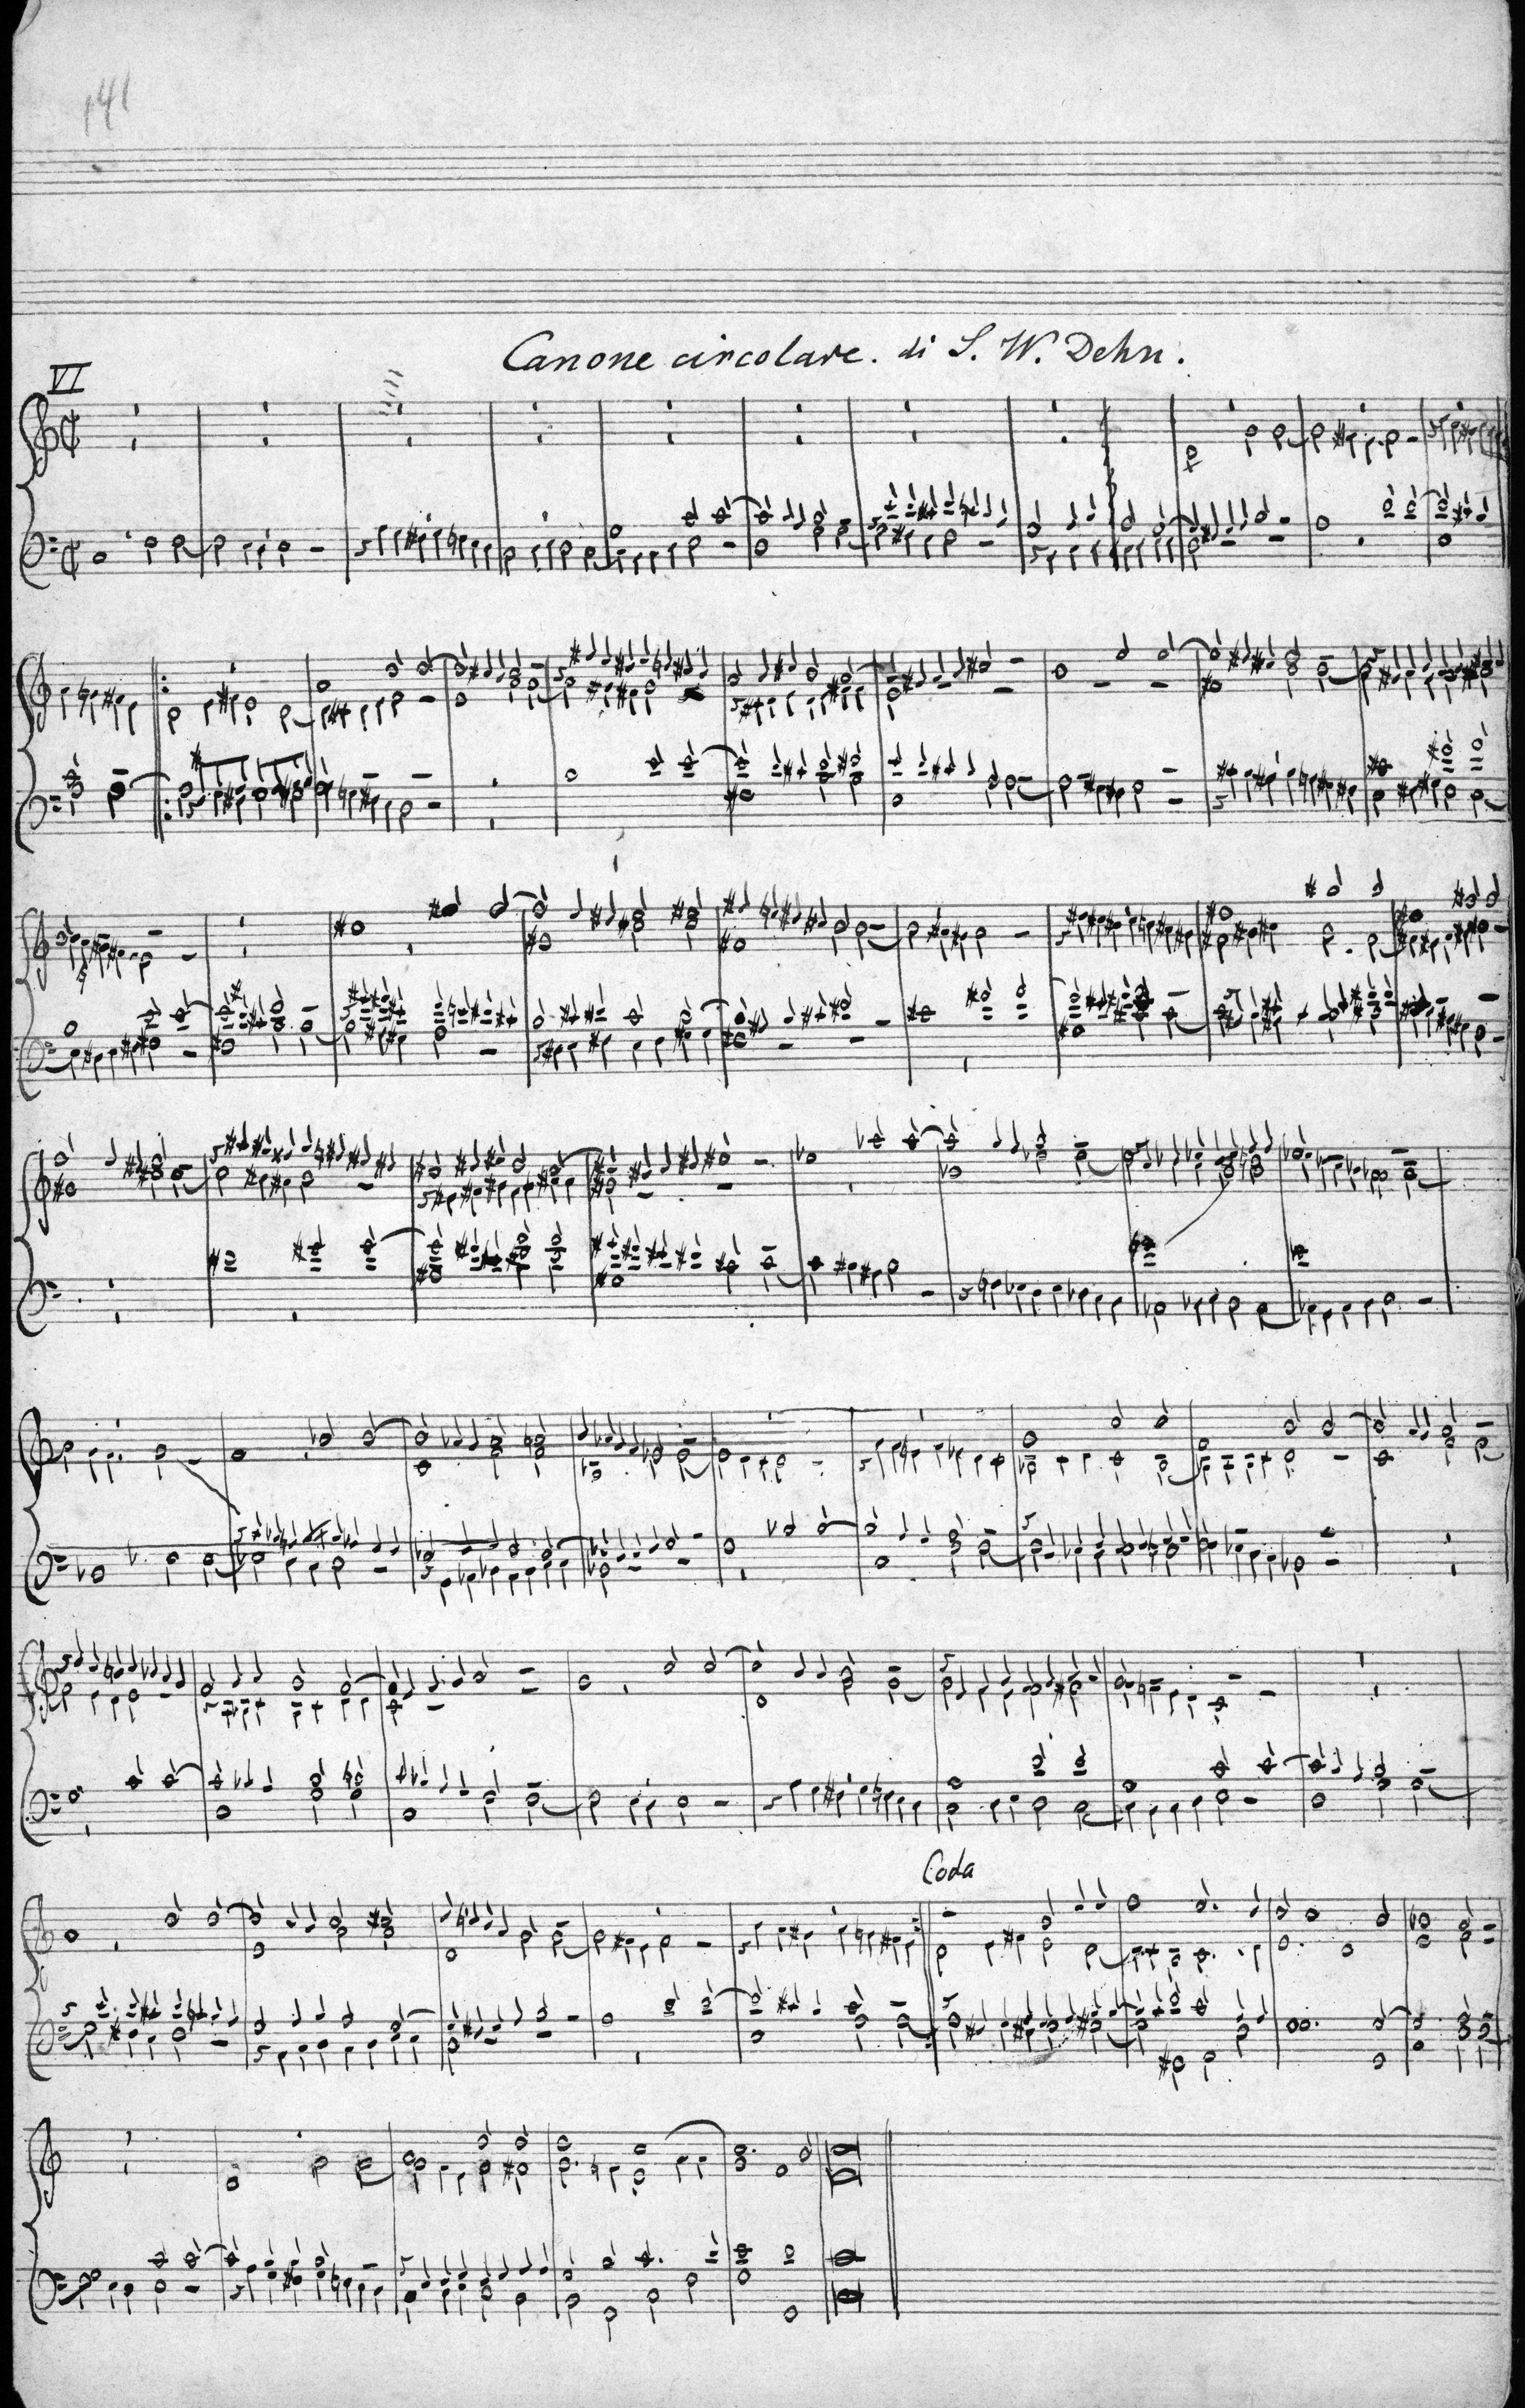 141
Canone circolare. di S. W. Dehn.
VI
Coda